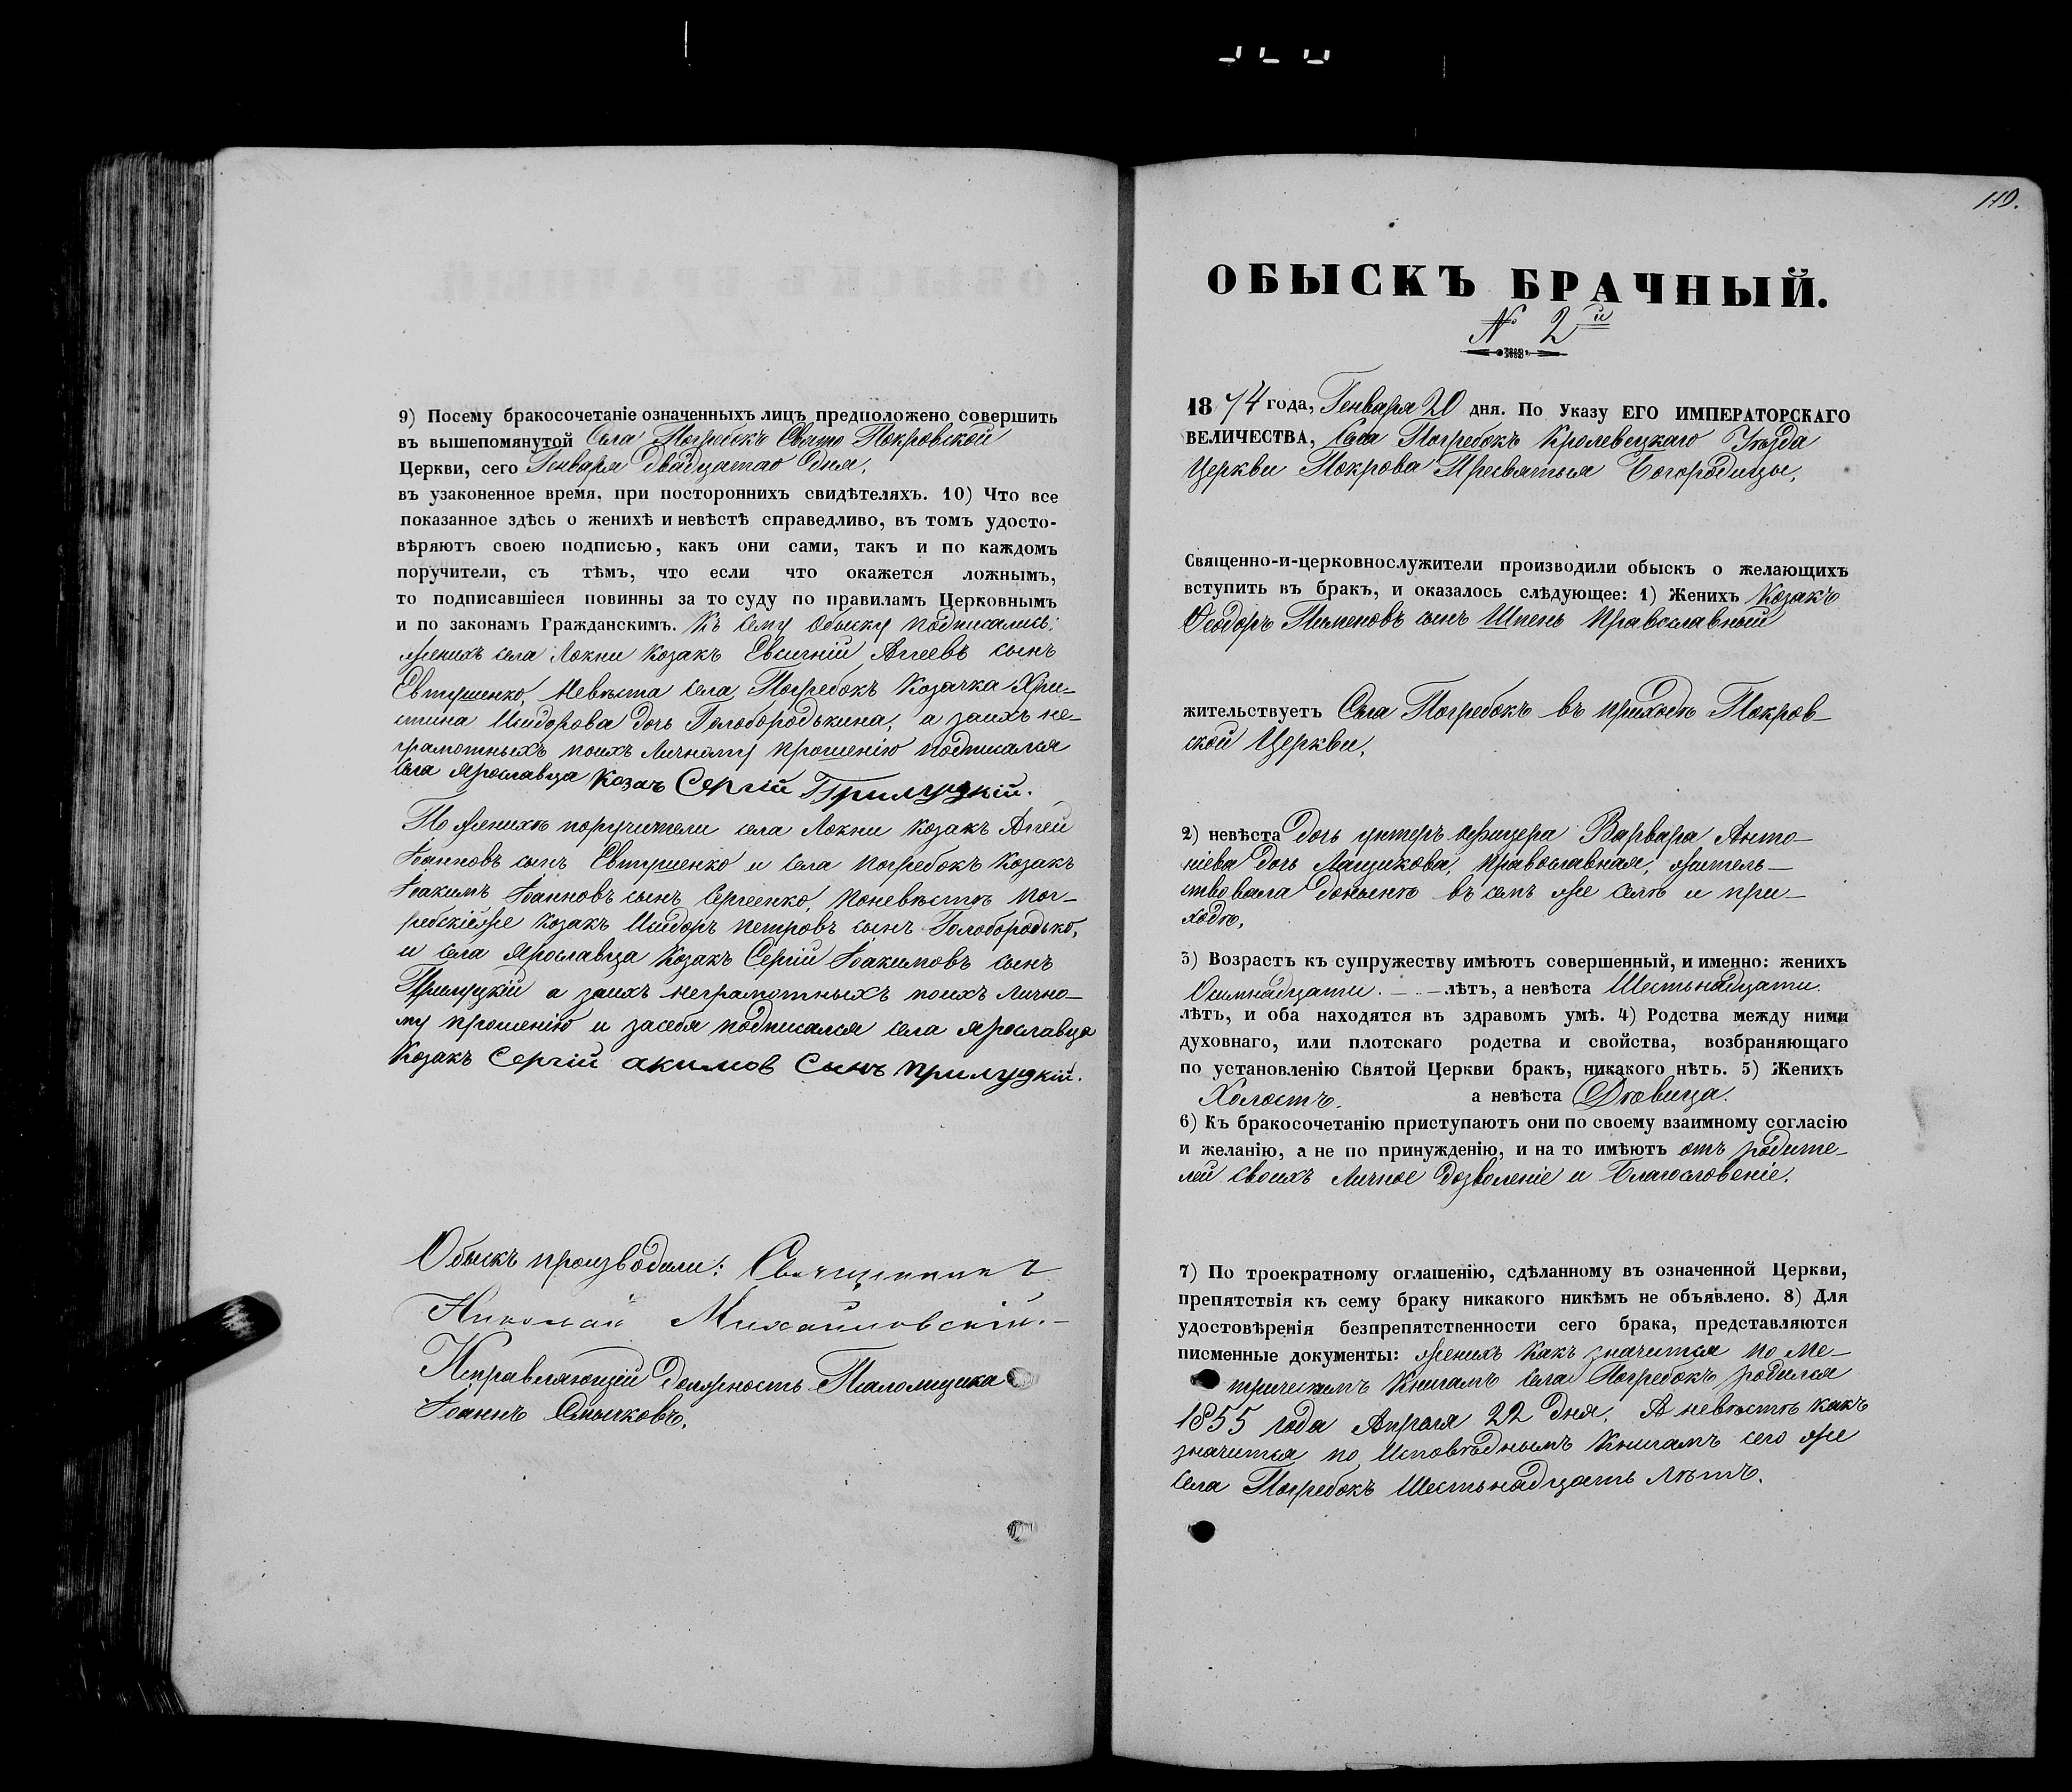 9) Посему бракосочетаніе означенныхъ лицъ предположено совершить
въ вышепомянутой Села Погребокъ Свято Покровской
Церкви, сего Генваря двадцатаго дня,
въ узаконенное время, при постороннихъ свидѣтеляхъ. 10) Что все
показанное здѣсь о женихѣ и невѣстѣ справедливо, въ томъ удосто-
вѣряютъ своею подписью, какъ они сами, такъ и по каждомъ
поручители, съ тѣмъ, что если что окажется ложнымъ,
то подписавшіеся повинны за то суду по правиламъ Церковнымъ
и по законамъ Гражданскимъ. Къ сему обыску подписались:
женихъ села Локни козакъ Евсигній Агеевъ сынъ
Евтушенко, Невѣста села Погребокъ Козачка Хри-
стина Исидорова дочь Голобородькина, а заихъ не-
грамотныхъ поихъ Личному прошенію подписался
села Ярославца Козакъ Сергій Прилуцкій.
По женихѣ поручители села Локни Козакъ Агей
Іоанновъ сынъ Евтушенко и села погребокъ Козакъ
Іоакимъ Іоанновъ сынъ Сергеенко, поневѣстѣ пог-
ребскійже козакъ Исидоръ петровъ сынъ Голобородько,
и села Ярославца Козакъ Сергій Іоакимовъ сынъ
Прилуцкій а заихъ неграмотныхъ поихъ Лично-
му прошенію и засебя подписался села Ярославца
Козакъ Сергій акимов Сынъ прилуцкій.
Обыскъ производили: Священникъ
Николай Михайловскій.
Исправляющій Должность Псаломщика
Іоаннъ Смычковъ.
119.
ОБЫСКЪ БРАЧНЫЙ.
№ 2й
1874 года, Генваря 20 дня. По Указу ЕГО ИМПЕРАТОРСКАГО
ВЕЛИЧЕСТВА, Села Погребокъ Кролевецкаго Уезда
Церкви Покрова Пресвятыя Богородицы,
Священно-и-церковнослужители производили обыскъ о желающихъ
вступить въ бракъ, и оказалось слѣдующее: 1) Женихъ Козакъ
Ѳеодоръ Пименовъ сынъ Шпень Православный
жительствуетъ Села Погребокъ въ приходѣ Покров-
ской Церкви,
2) невѣста Дочь унтеръ офицера Варвара Анто-
ніева дочь Лащикова, православная, жительь-
ствовала донынѣ въ семъ же селѣ и при-
ходѣ.
3) Возрастъ къ супружеству имѣютъ совершенный, и именно: женихъ
Осимнадцати. лѣтъ, а невѣста Шестьнадцати.
лѣтъ, и оба находятся въ здравомъ умѣ. 4) Родства между ними
духовнаго, или плотскаго родства и свойства, возбраняющаго
по установленію Святой Церкви бракъ, никакого нѣтъ. 5) Женихъ
Холостъ. а невѣста Дѣвица.
6) Къ бракосочетанію приступаютъ они по своему взаимному согласію
и желанію, а не по принужденію, и на то имѣютъ отъ родите-
лей своихъ Личное дозволеніе и Благословеніе.
7) По троекратному оглашенію, сдѣланному въ означенной Церкви,
препятствія къ сему браку никакого никѣмъ не объявлено. 8) Для
удостовѣренія безпрепятственности сего брака, представляются
писменные документы: женихъ Какъ значится по Ме-
трическимъ Книгамъ села Погребокъ родился
1855 года Апреля 22 дня. А невѣстѣ какъ
значится по Исповѣднымъ Книгамъ сего же
села Погребокъ Шестьнадцать Лѣтъ.